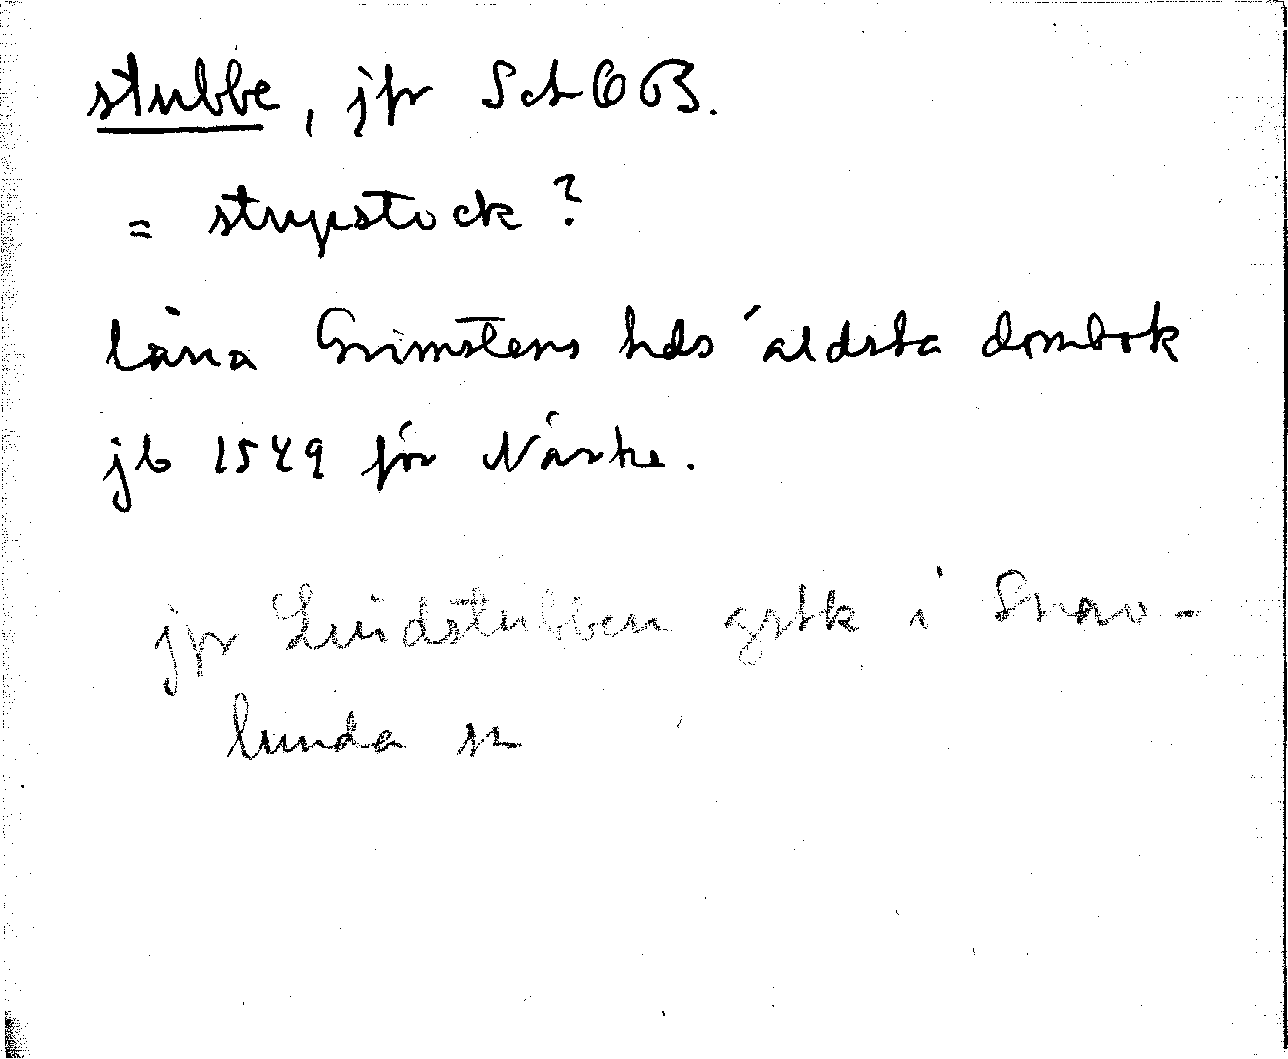 stubbe, jfr SdOB.
= strypstock?
låna Grimstens hds äldsta dombok
jb 1549 för Närke.
jfr Lindstubben gstk i Snav-
lunda sn